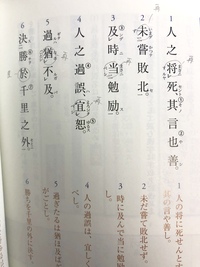 1 人之将死其言也善。
2 未嘗敗北。
3 及時当勉励。
4 人之過誤宜恕
5 過猶不及
6 決勝於千里之外
1 人の将に死せんと
其の言や善し。
2 未だ嘗て敗北せず。
3 時に及んで当に勉励
べし。
4 人の過誤は、宜しく
べし。
5 過ぎたるは猶ほ及ば
がごとし。
6 勝ちを千里の外に決す。